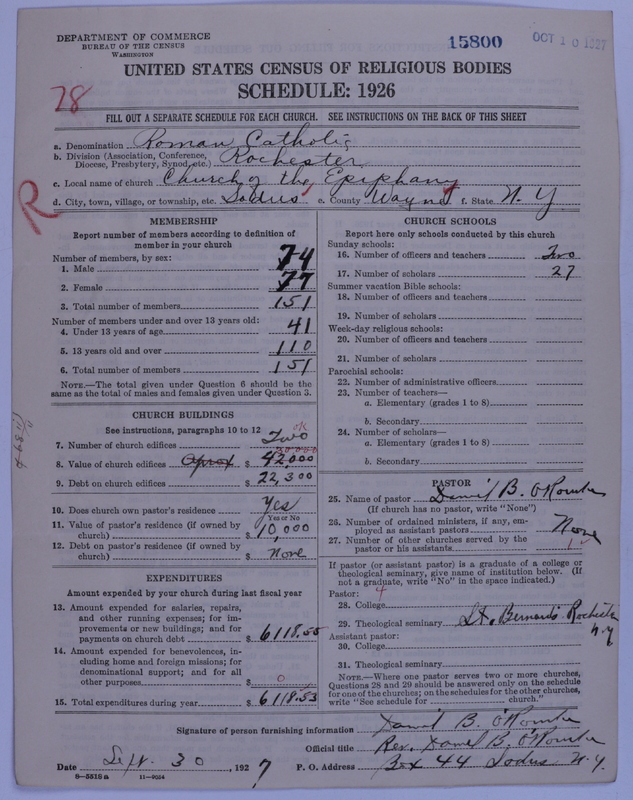 DEPARTMENT OF COMMERCE
BUREAU OF THE CENSUS
WASHINGTON
15800
OCT 10 1927
UNITED STATES CENSUS OF RELIGIOUS BODIES
SCHEDULE: 1926
78
FILL OUT A SEPARATE SCHEDULE FOR EACH CHURCH. SEE INSTRUCTIONS ON THE BACK OF THIS SHEET
a. Denomination Roman Catholic
b. Division (Association, Conference, Diocese, Presbytery, Synod, etc.) Rochester
c. Local name of church Church of the Epiphany
d. City, town, village, or township, etc. Sodus e. County Wayne f. State N. Y
R
MEMBERSHIP
Report number of members according to definition of
member in your church
Number of members, by sex:
1. Male 74
2. Female 77
3. Total number of members 151
Number of members under and over 13 years old:
4. Under 13 years of age 41
5. 13 years old and over 110
6. Total number of members 151
NOTE.—The total given under Question 6 should be the
same as the total of males and females given under Question 3.
CHURCH BUILDINGS
See instructions, paragraphs 10 to 12
ok
7. Number of church edifices Two
8. Value of church edifices Aprox $ 42,000
9. Debt on church edifices $ 22,300
10. Does church own pastor's residence Yes
Yes or No
11. Value of pastor's residence (if owned by
church) $ 10,000
12. Debt on pastor's residence (if owned by
church) $ None
EXPENDITURES
Amount expended by your church during last fiscal year
13. Amount expended for salaries, repairs,
and other running expenses; for im-
provements or new buildings; and for
payments on church debt $ 6118.55
14. Amount expended for benevolences, in-
cluding home and foreign missions; for
denominational support; and for all
other purposes $ 0
15. Total expenditures during year $ 6118.53
CHURCH SCHOOLS
Report here only schools conducted by this church
Sunday schools:
16. Number of officers and teachers Two
17. Number of scholars 27
Summer vacation Bible schools:
18. Number of officers and teachers
19. Number of scholars
Week-day religious schools:
20. Number of officers and teachers
21. Number of scholars
Parochial schools:
22. Number of administrative officers
23. Number of teachers—
a. Elementary (grades 1 to 8)
b. Secondary
24. Number of scholars—
a. Elementary (grades 1 to 8)
b. Secondary
PASTOR
25. Name of pastor Daniel B. O'Rourke
(If church has no pastor, write "None")
26. Number of ordained ministers, if any, em-
ployed as assistant pastors None
27. Number of other churches served by the
pastor or his assistants 1
If pastor (or assistant pastor) is a graduate of a college or
theological seminary, give name of institution below. (If
not a graduate, write "No" in the space indicated.)
Pastor: 4
28. College
29. Theological seminary St. Bernard's Rochester
N. Y
Assistant pastor:
30. College
31. Theological seminary
NOTE.—Where one pastor serves two or more churches,
Questions 28 and 29 should be answered only on the schedule
for one of the churches; on the schedules for the other churches,
write "See schedule for church."
Signature of person furnishing information Daniel B. O'Rourke
Official title Rev. Daniel B. O'Rourke
Date Sept. 30, 1927 P. O. Address Box 44 Sodus N. Y.
8-5518a 11-9054